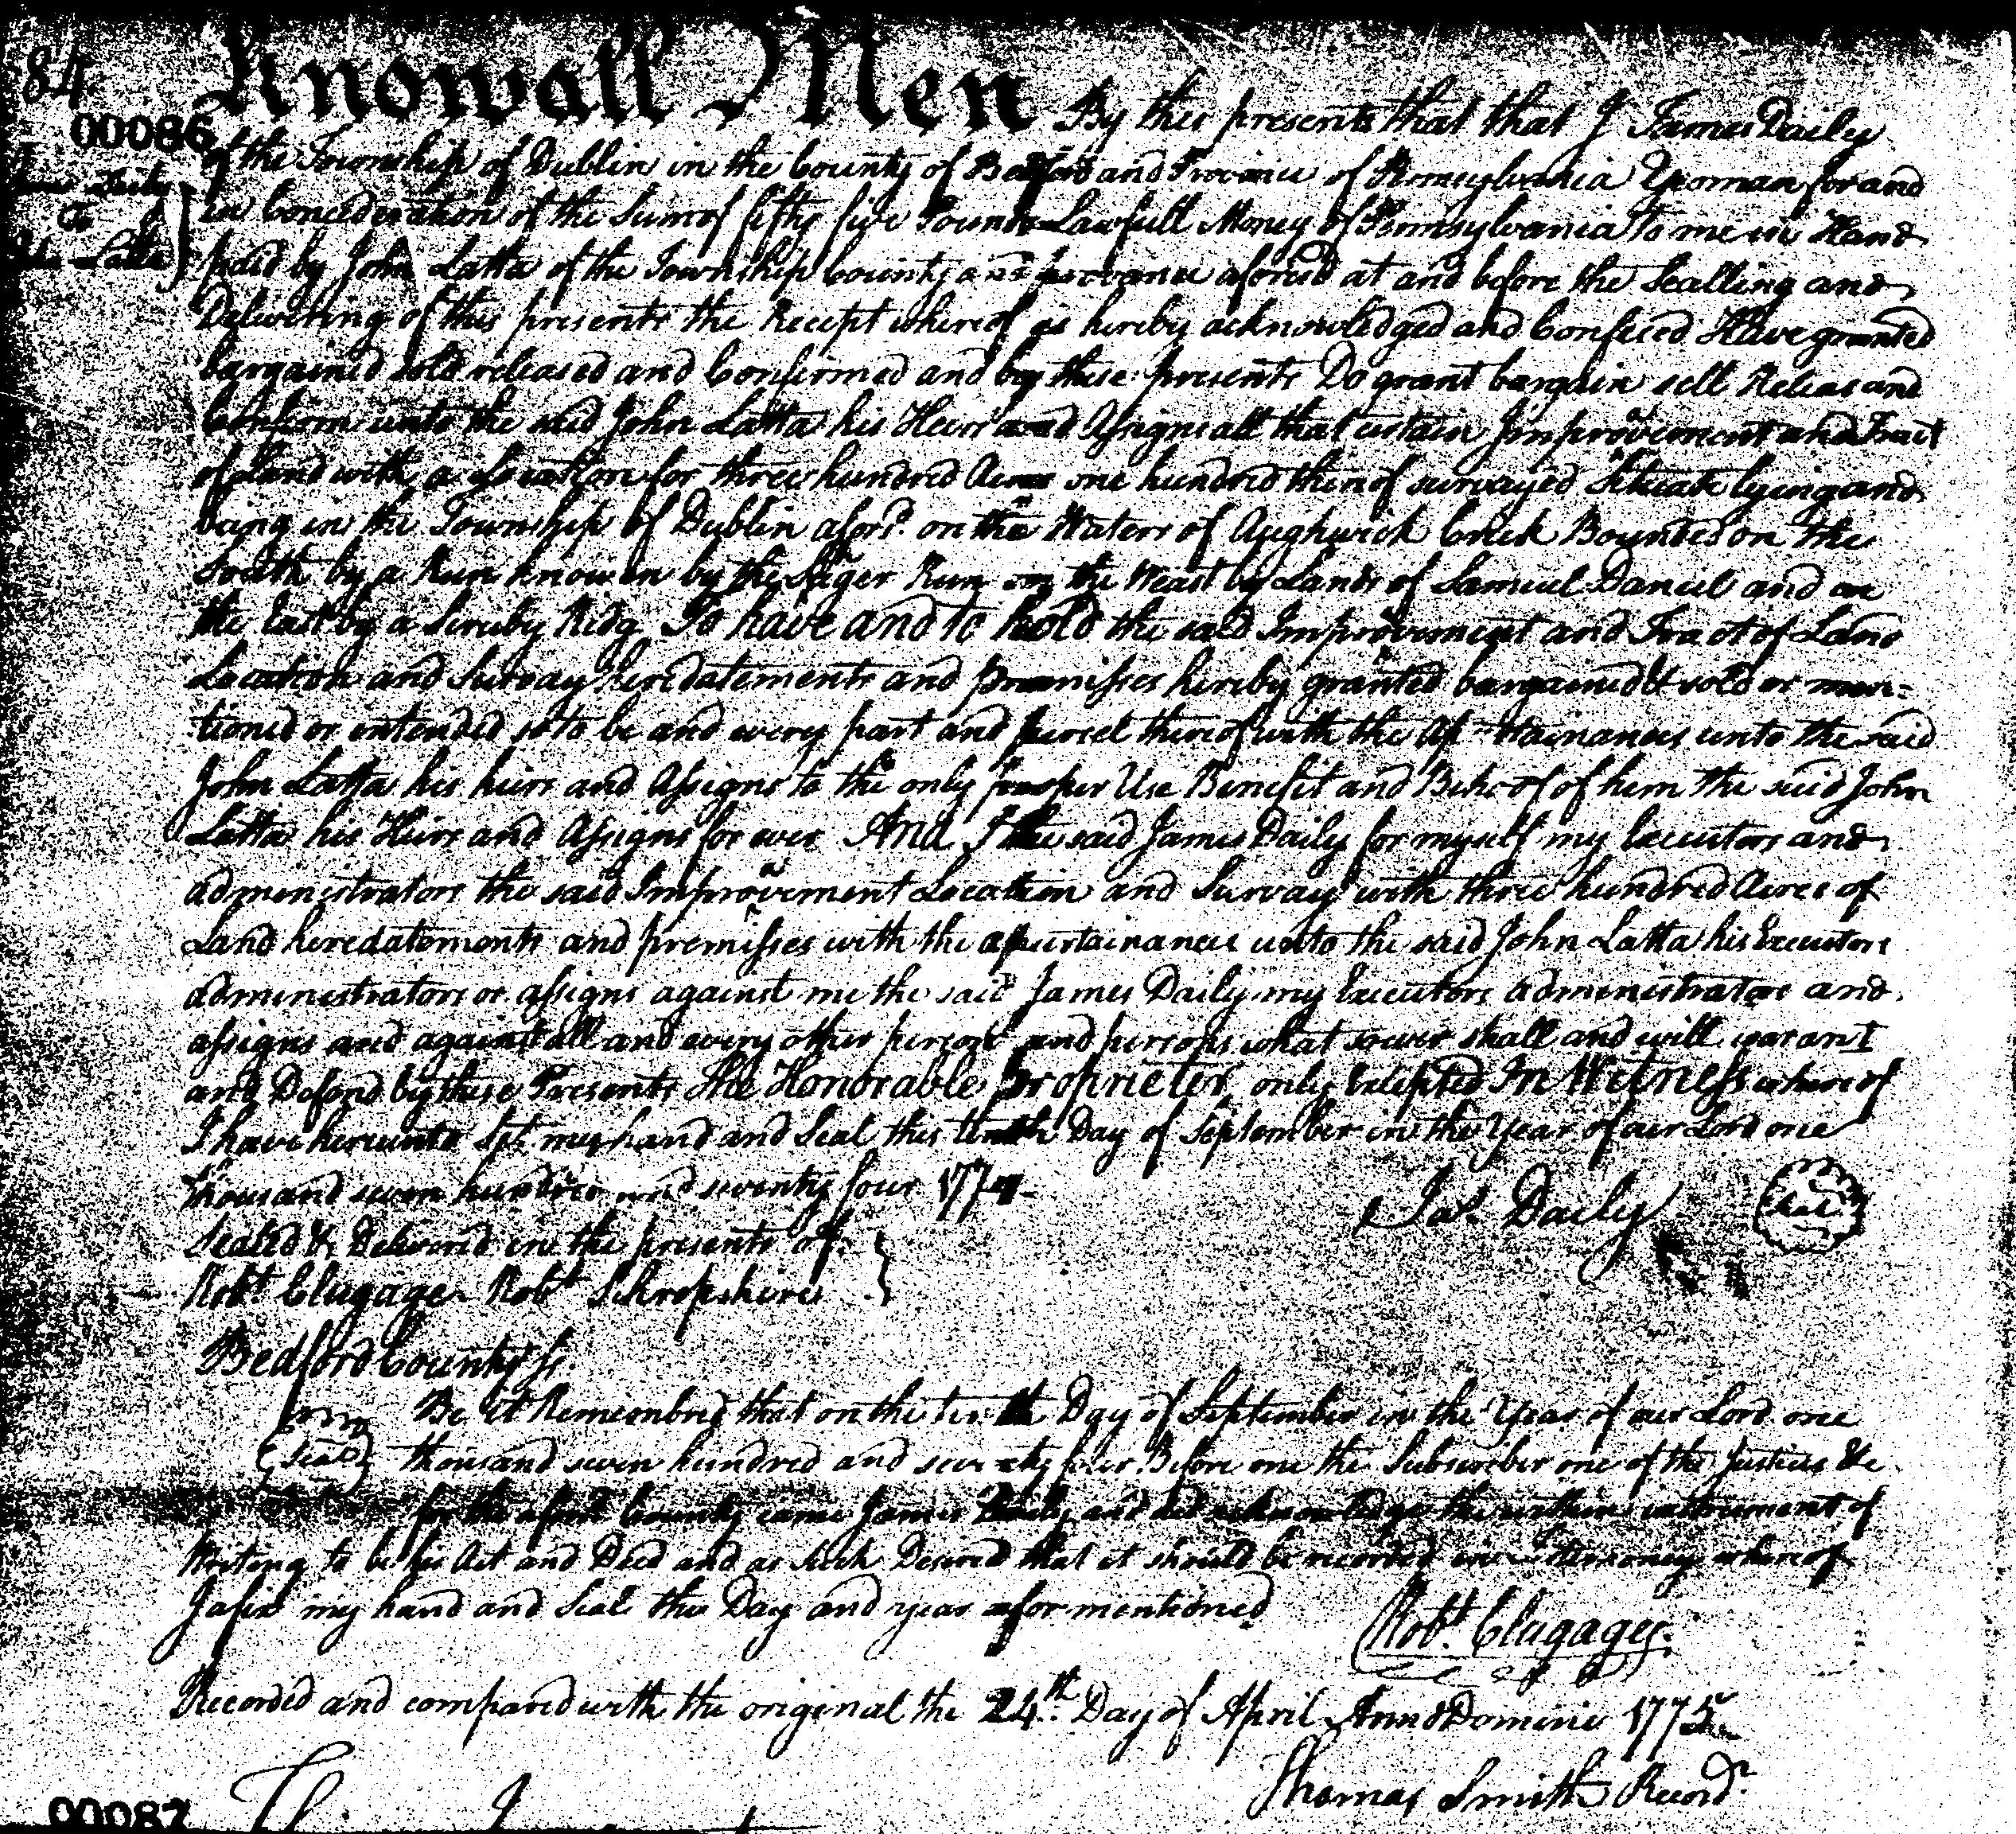 84
Know all Men By these presents that that I James Daily
00086
of the Township of Dublin in the County of Bedford and Province of Pennsylvania Yeoman for and
James Daily
To
John Latta
in Concideration of the Sum of fifty five Pounds Lawfull Money of Pennsylvania to me in Hand
paid by John Latta of the Township County and Provance aforesd at and before the Sealling and
Delivering of this presents the Recept whereof is hereby acknowledged and Confesed Have granted
bargained sold released and Confirmed and by these presents Do grant bargain sell Releas and
Confirm unto the said John Latta his Heirs and Assigns all that certain Improvement and Tract
of Land with a Location for three hundred Acres one hundred thereof survayed Situate lyeing and
being in the Township of Dublin afors.d on the Waters of Aughwick Creek Bounded on the
South by a Run knowen by the Run on the Weast by Lands of Samuel Daniel and on
the East by a Scruby Ridg To have and to hold the said Improvement and Tract of Land
Location and Survay heredatements and premisses hereby granted bargained & sold or men=
tioned or intended so to be and every part and parcel thereof with the Ap-tainances unto the said
John Latta his heirs and Assigns to the only proper Use Benefit and Behoof of him the said John
Latta his Heirs and Assigns for ever And I the said James Daily for myself my Executors and
administrators the said Improvement Location and Survay with three hundred Acres of
Land heredatements and premisses with the apurtainances unto the said John Latta his Executors
administrators or assigns against me the said James Daily my Executors administrators and
assigns and against all and every other person and persons what soever shall and will warant
and Defend by these Presents The Honorable Proprieter only Excepted In Witness whereof
I have hereunto Set my hand and Seal this tenth Day of September in the Year of our Lord one
thousand seven hundred and seventy four 1774
Jas. Daily Seal
Sealed & Delivered in the presents of
Robt Clugage Robt Schropshire
Bedford County ss.
Be it Remembred that on the tenth Day of September in the Year of our Lord one
Seal
thousand seven hundred and seventy four Before me the Subscriber one of the Justices &c
for the aforsd County came James Daily and did acknowledge the within instrument of
Writeng to be his Act and Deed and as such Desired that it should be recorded in Testemoney whereof
I afix my hand and Seal the Day and year afor mentioned
Robt. Clugage
Recorded and compared with the original the 24th Day of April Anno Domini 1775
Thomas Smith Recordr.
00087